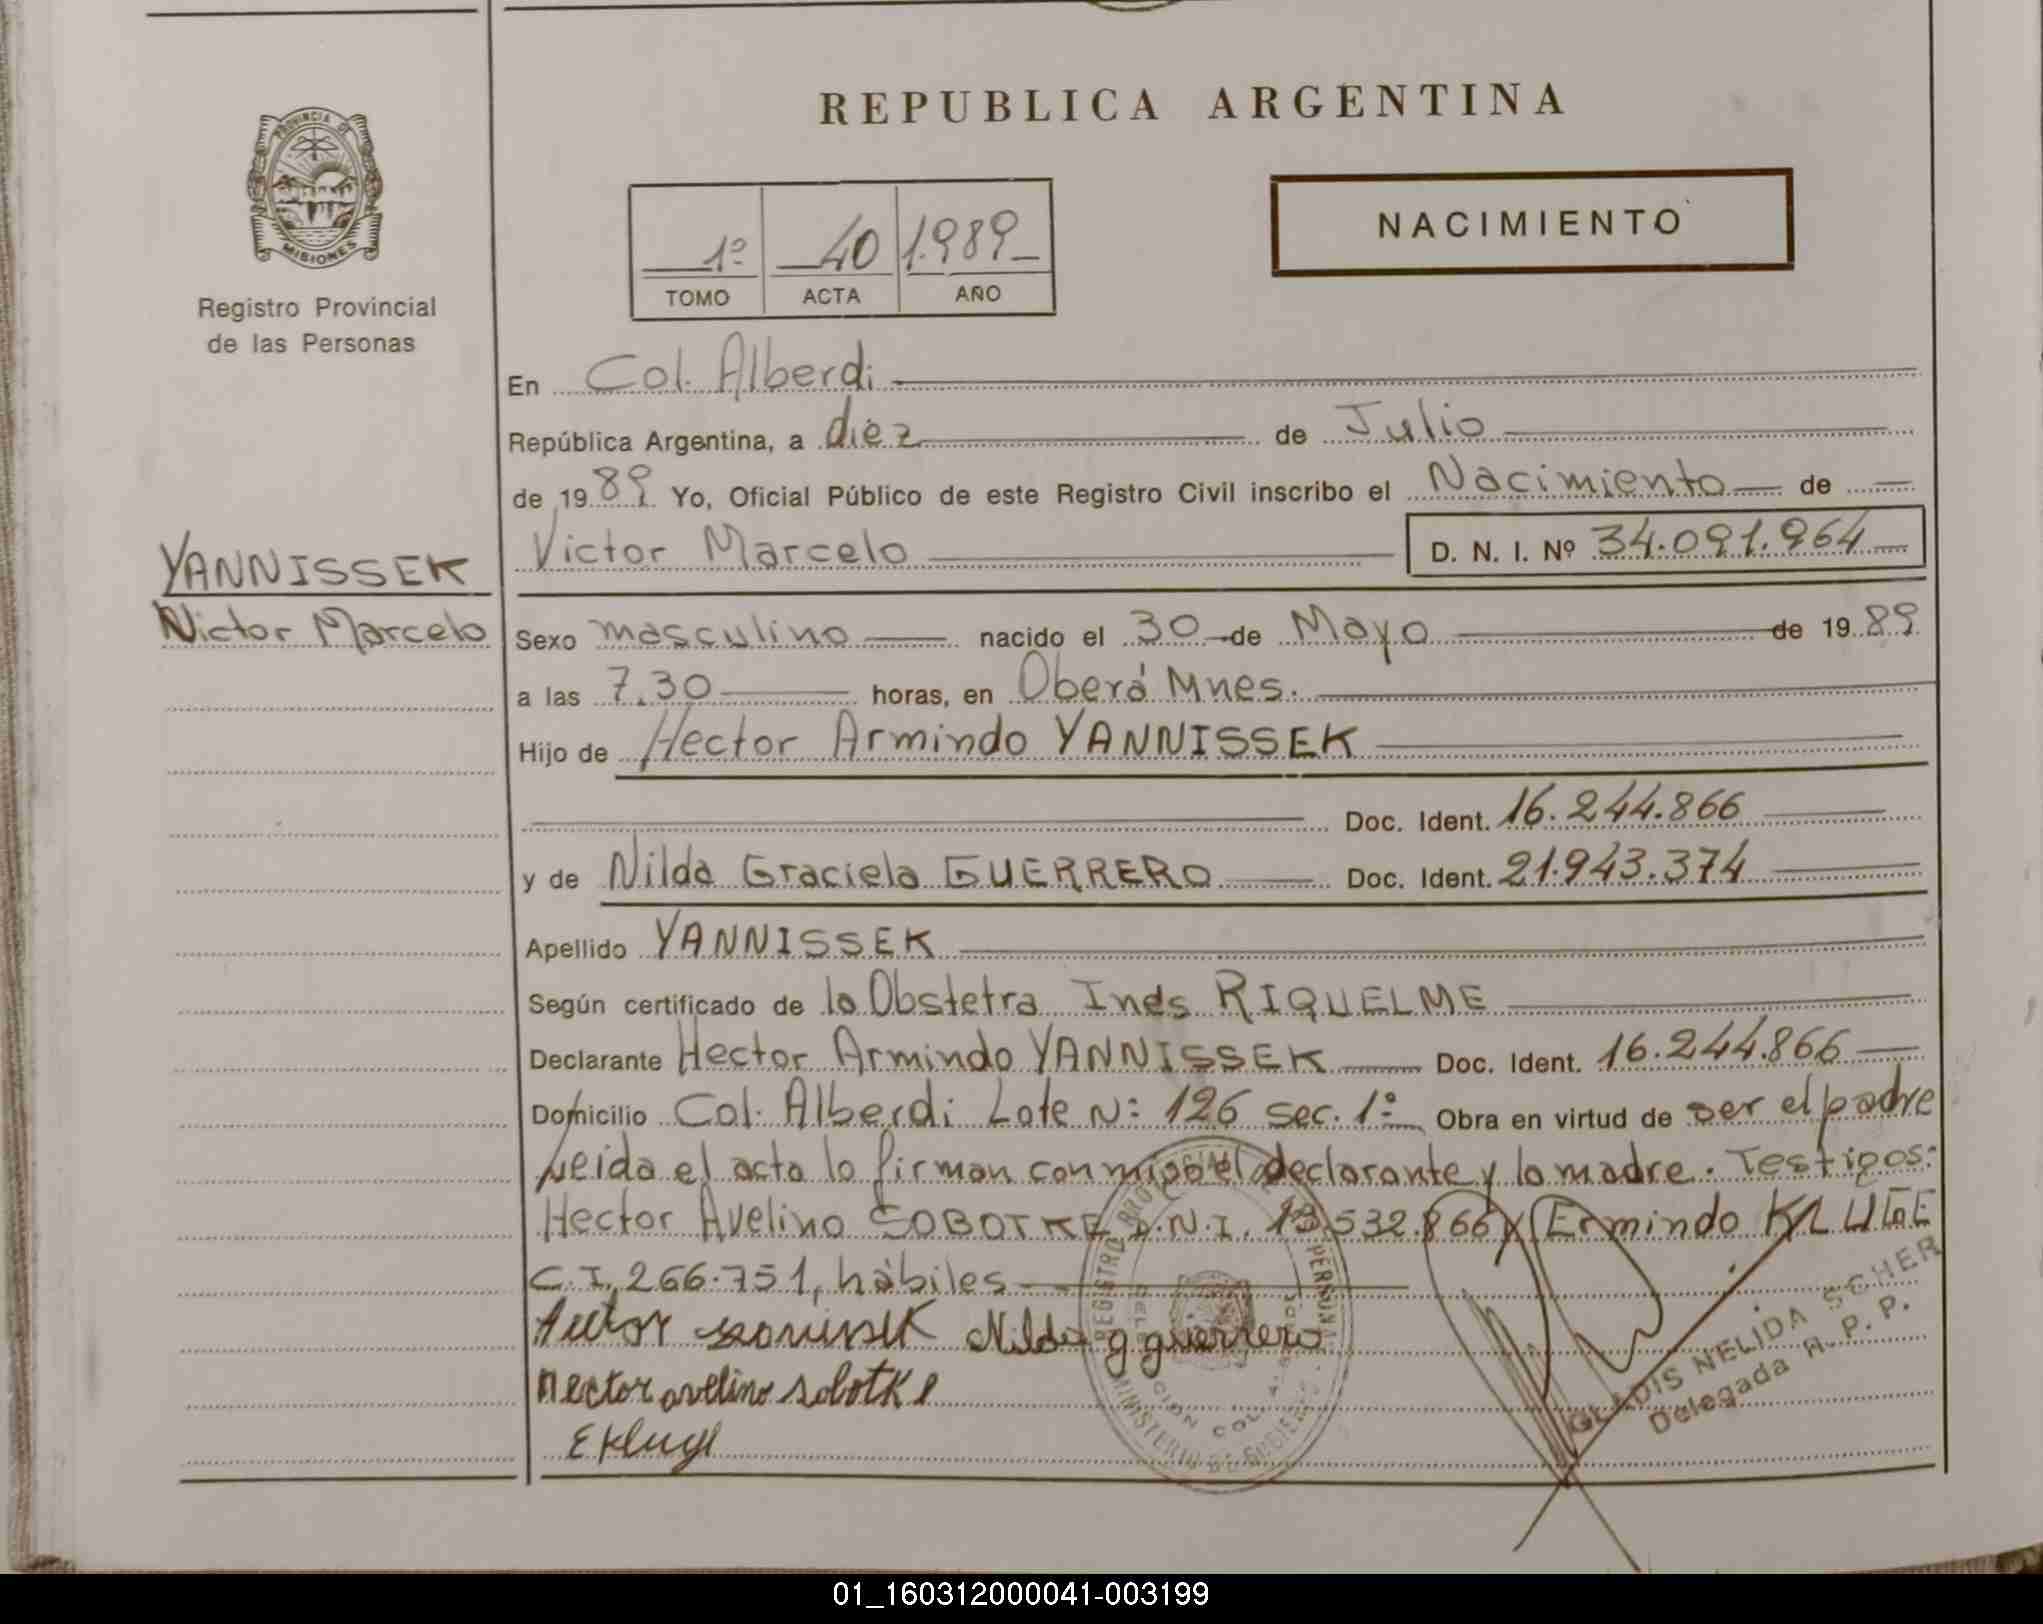 REPUBLICA ARGENTINA
PROVINCIA DE
MISIONES
Registro Provincial
de las Personas
1º 40 1.989
TOMO ACTA AÑO
NACIMIENTO
En Col. Alberdi
República Argentina, a diez de Julio
de 1989 Yo, Oficial Público de este Registro Civil inscribo el Nacimiento de
Victor Marcelo D. N. I. Nº 34.091.964
YANNISSEK
Victor Marcelo
Sexo masculino nacido el 30 de Mayo de 1989
a las 7.30 horas, en Oberá Mnes.
Hijo de Hector Armindo YANNISSEK
Doc. Ident. 16.244.866
y de Nilda Graciela GUERRERO Doc. Ident. 21.943.374
Apellido YANNISSEK
Según certificado de la Obstetra Ines RIQUELME
Declarante Hector Armindo YANNISSEK Doc. Ident. 16.244.866
Domicilio Col. Alberdi Lote Nº 126 sec. 1º Obra en virtud de ser el padre
Leida el acta la firman conmigo el declarante y la madre. Testigos:
Hector Avelino SOBOTKE D.N.I. 13.532.866 y Ermindo KLUGE
C.I. 266.751, hábiles
Nilda g guerrero
Hector avelino sobotke
E Kluge
GLADIS NELIDA SCHER
Delegada R. P. P.
01_160312000041-003199